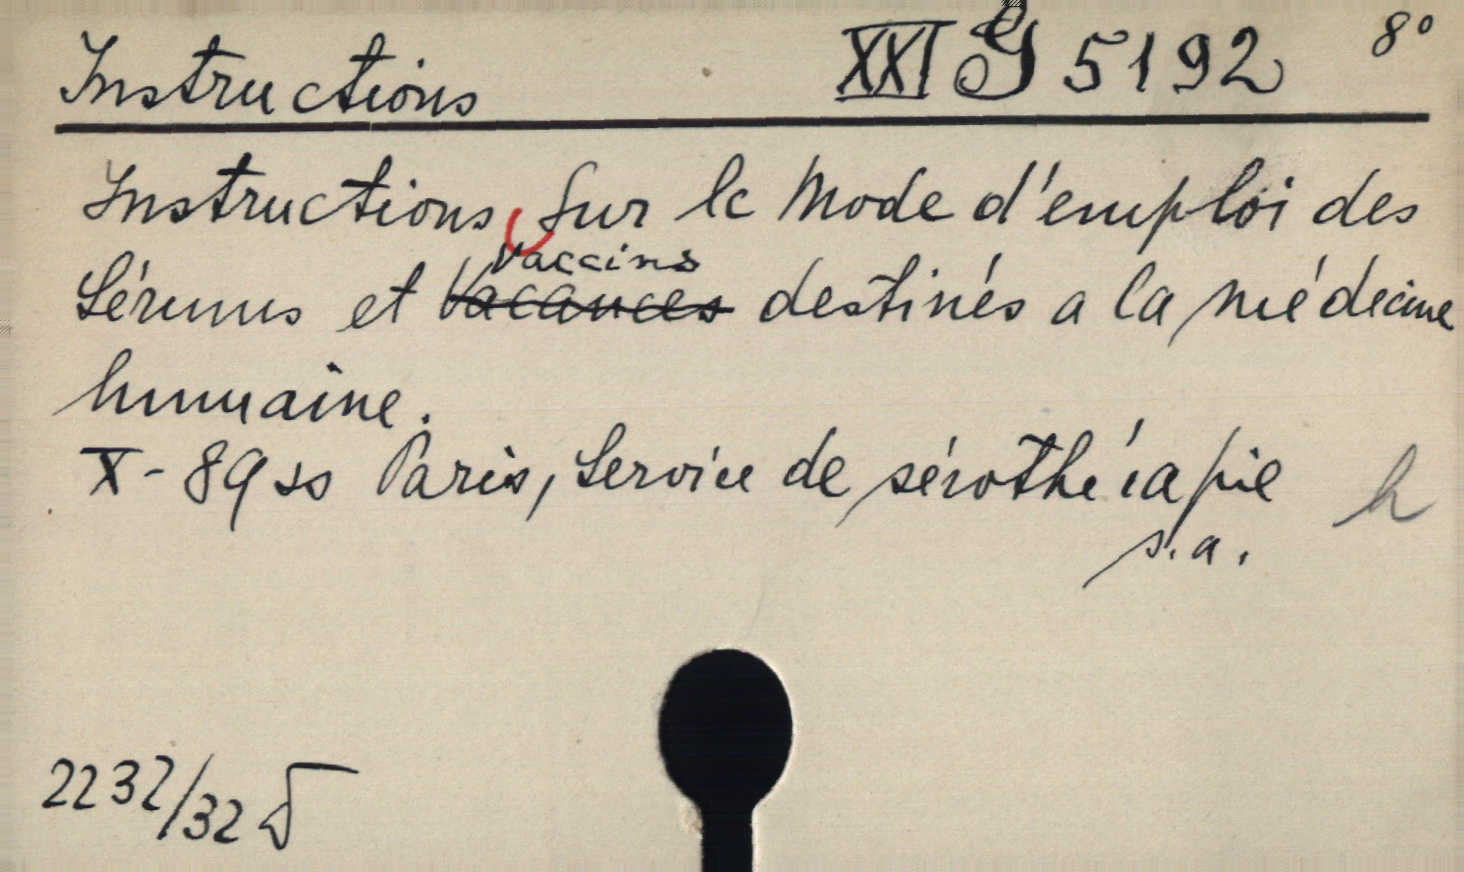 Instructions XXI G 5192 8°
Instructions sur le Mode d'emploi des
Vaccins
Sérums et Vacances destinés a la médecine
humaine.
X-89 ss Paris, Service de sérothérapie h
s.a.
2232/32